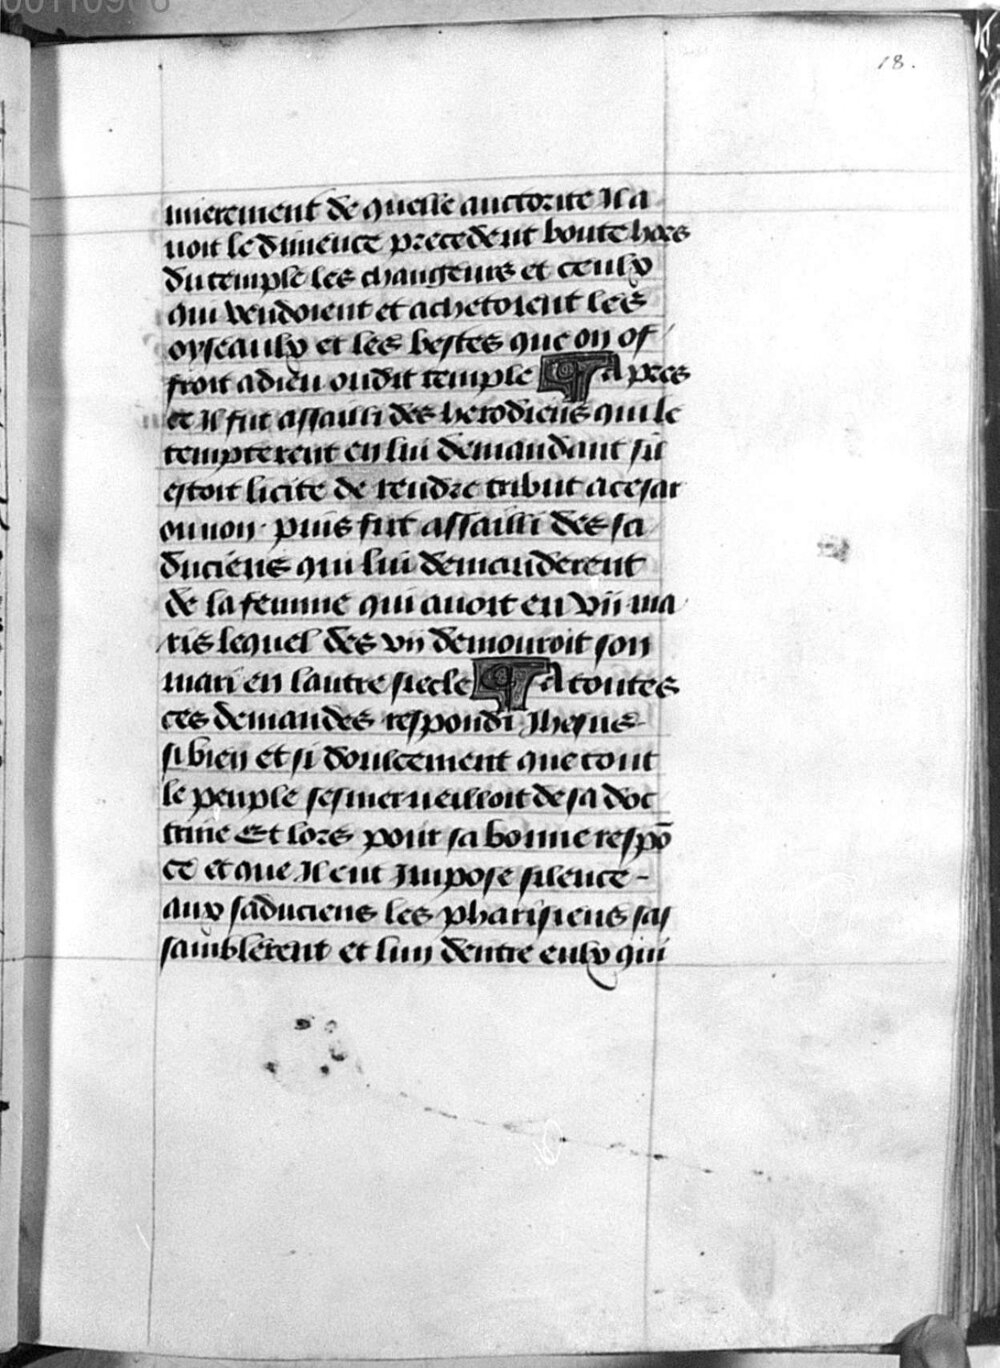 18.
mierement de quelle auctorite Il a
uoit le dimence precedent boute hors
du temple les changeurs et ceulx
qui vendoient et achetoient les
oyseaulx et les bestes que on of
froit a dieu oudit temple ¶ Apres
ce Il fut assailli des herodiens qui le
tempterent en lui demandant sil
estoit licite de rendre tribut a cesar
ou non. puis fut assailli des sa
duciens qui lui demanderent
de la femme qui auoit eu vii ma
ris lequel des vii demouroit son
mari en lautre siecle ¶ A toutes
ces demandes respondi Jhesus
si bien et si doulcement que tout
le peuple sesmerueilloit de sa doc
trine Et lors pour sa bonne respõ
ce et que Il eut Impose silence
aux saduciens les pharisiens sas
samblerent et lun dentre eulx qui